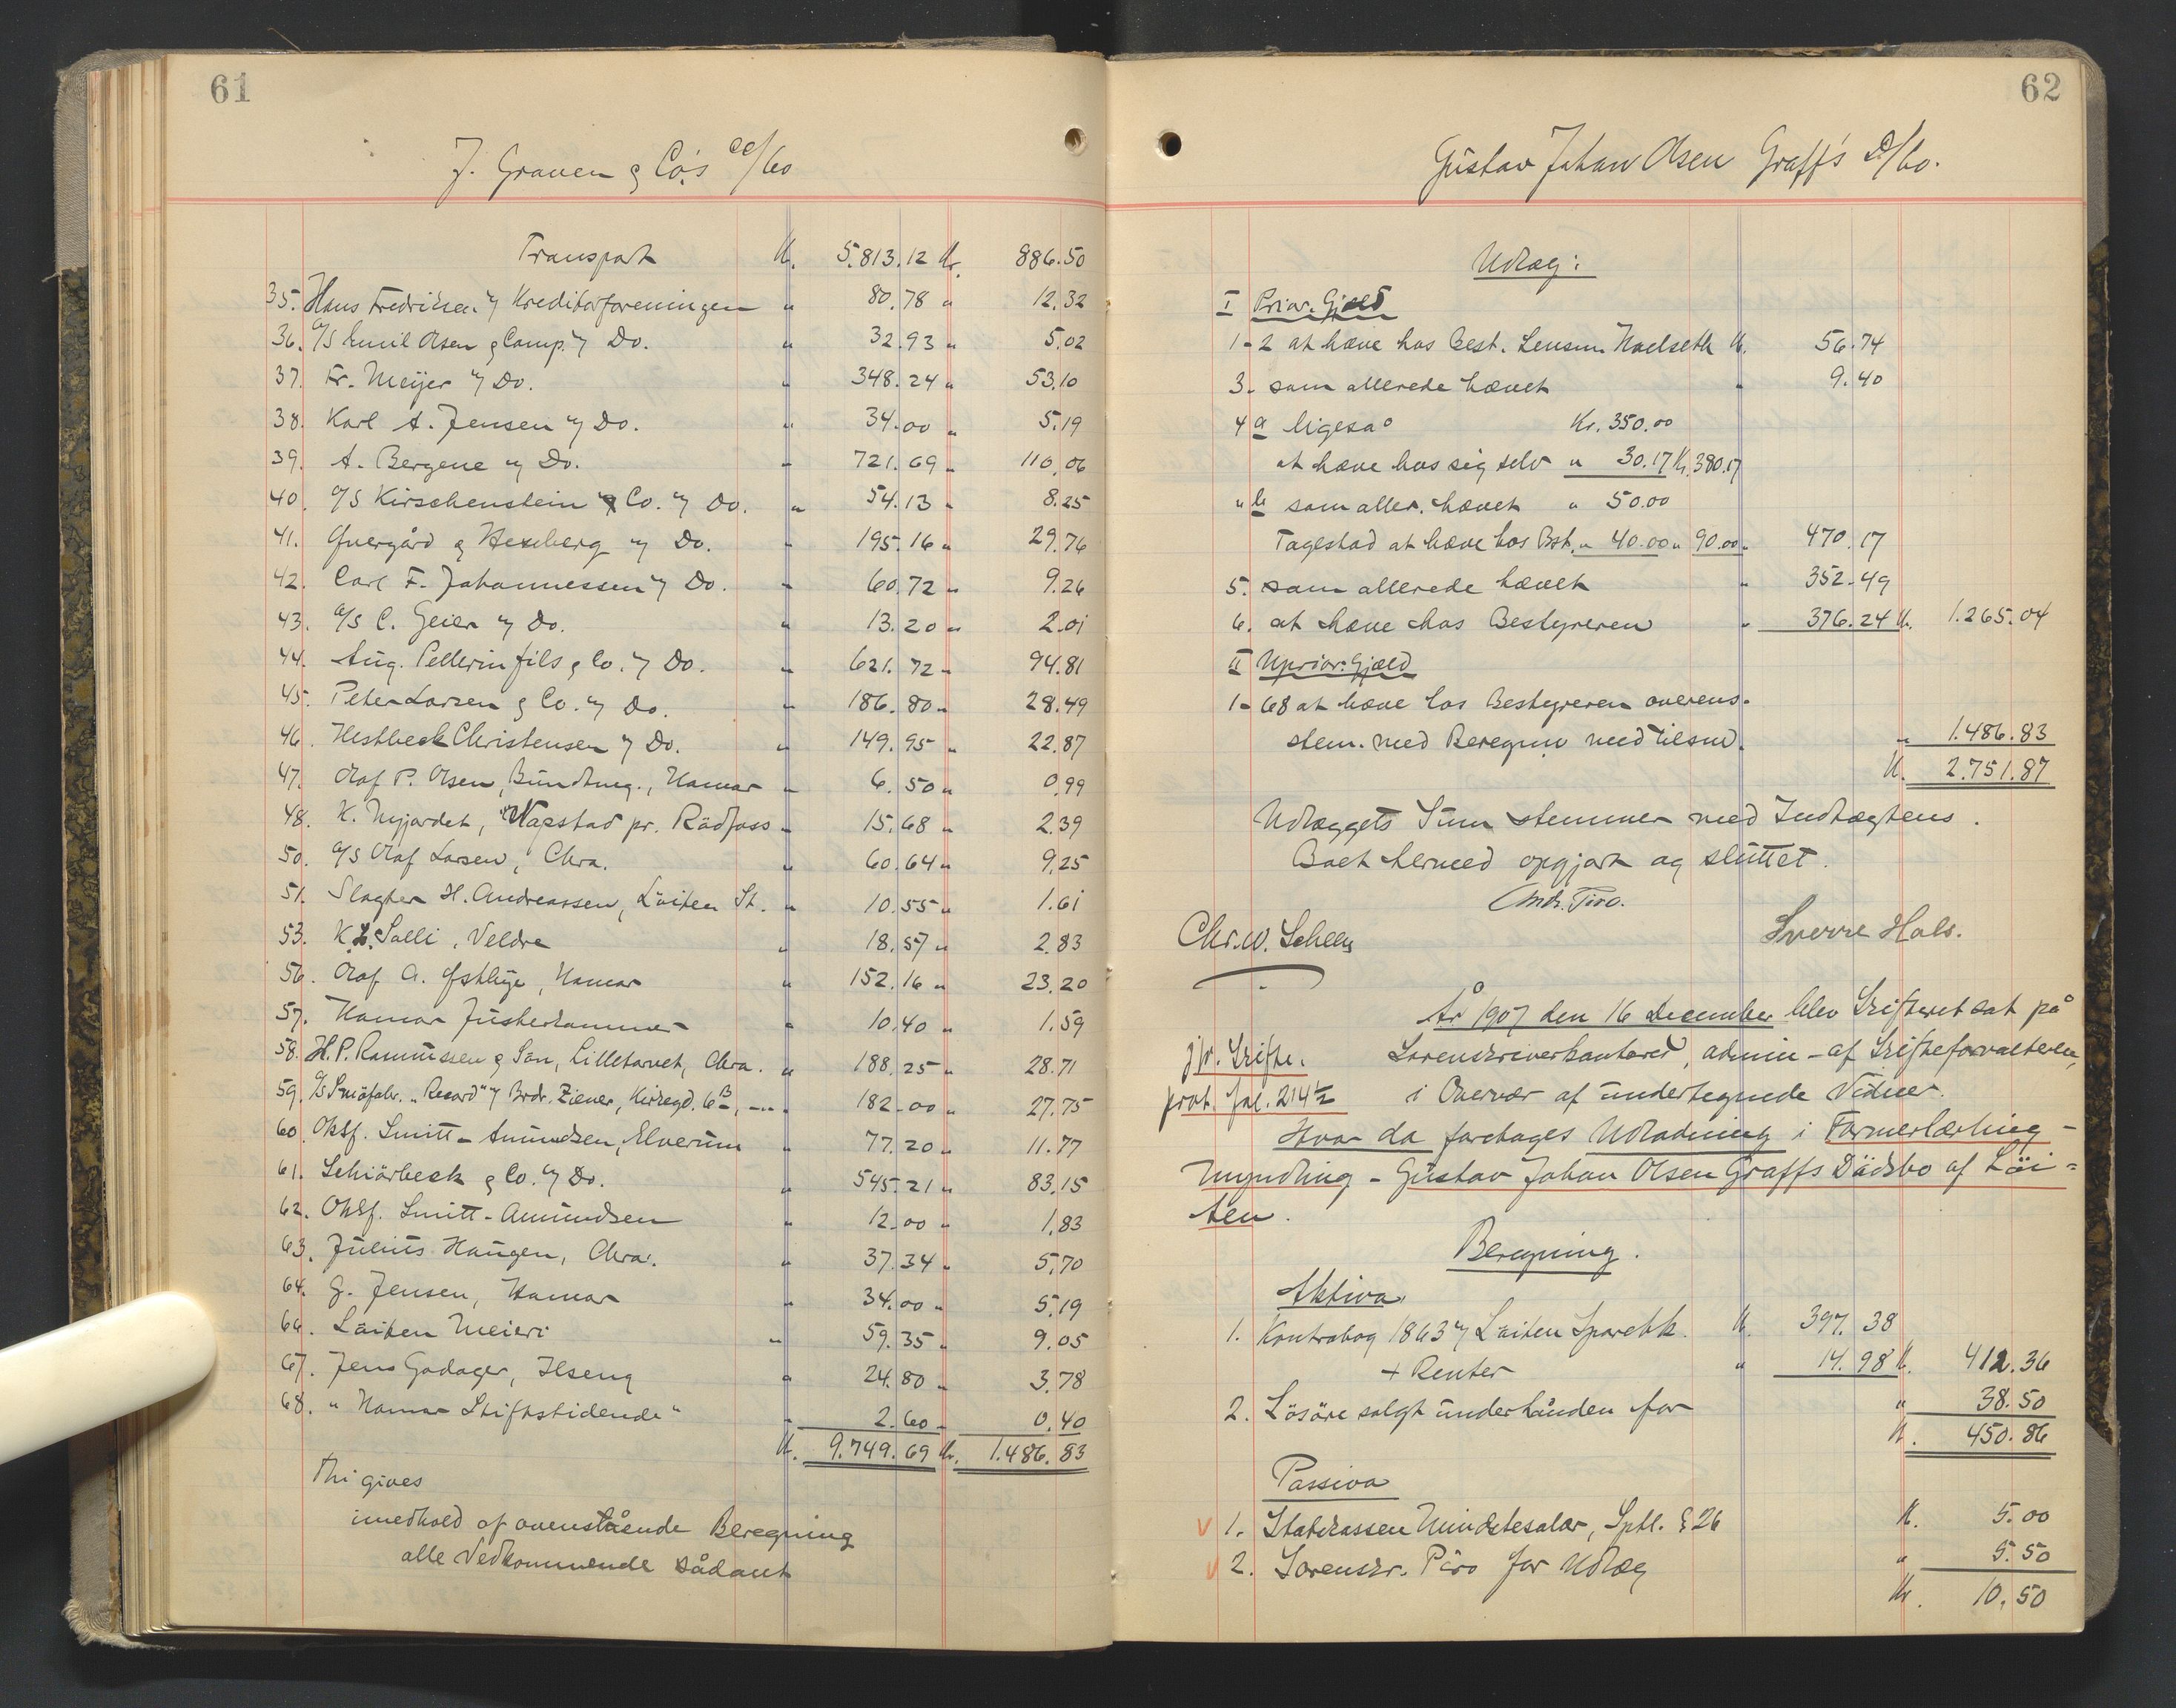 61
J. Graven & Co's cc/bo
Transport Kr. 5.813.12 Kr. 886.50
35. Hans Fredriksen v/ Kreditorforeningen " 80.78 " 12.32
36. A/S Emil Olsen & Comp. v/ Do. " 32.93 " 5.02
37. Fr. Meijer v/ Do. " 348.24 " 53.10
38. Karl A. Jensen v/ Do. " 34.00 " 5.19
39. A. Bergene v/ Do. " 721.69 " 110.06
40. A/S Kirschenstein & Co. v/ Do. " 54.13 " 8.25
41. Gvergård & Hexeberg v/ Do. " 195.16 " 29.76
42. Carl F. Johannessen v/ Do. " 60.72 " 9.26
43. A/S C. Geier v/ Do. " 13.20 " 2.01
44. Aug. Pellerin fils & Co. v/ Do. " 621.72 " 94.81
45. Peter Larsen & Co. v/ Do. " 186.80 " 28.49
46. Hestbeck Christensen v/ Do. " 149.95 " 22.87
47. Olaf P. Olsen, Bundtmg., Hamar " 6.50 " 0.99
48. K. Nyjordet, Napstad pr. Rødfoss " 15.68 " 2.39
50. A/S Olaf Larsen, Chra. " 60.64 " 9.25
51. Slagter H. Andreassen, Løiten St. " 10.55 " 1.61
53. K. L. Salli, Veldre " 18.57 " 2.83
56. Olaf A. Østbye, Hamar " 152.16 " 23.20
57. Hamar Justerkammer " 10.40 " 1.59
58. H. P. Rasmussen & Søn, Lilletorvet, Chra. " 188.25 " 28.71
59. A/S Smöfabr. "Record" v/ Brdr. Ziener, Kirkegd. 6B, -"- " 182.00 " 27.75
60. Oksf. Smitt-Amundsen, Elverum " 77.20 " 11.77
61. Schiörbeck & Co. v/ Do. " 545.21 " 83.15
62. Oksf. Smitt-Amundsen " 12.00 " 1.83
63. Julius Haugen, Chra. " 37.34 " 5.70
64. G. Jensen, Hamar " 34.00 " 5.19
66. Löiten Meieri " 59.35 " 9.05
67. Jens Godager, Ilseng " 24.80 " 3.78
68. "Hamar Stiftstidende" " 2.60 " 0.40
Kr. 9.749.69 Kr. 1.486.83
Thi gives
imedhold af ovenstående Beregning
alle Vedkommende sådant
62
Gustav Johan Olsen Graff's D/bo.
Udlæg:
I Prior. Gjæld
1-2 at hæve hos Best. Lensm. Naelseth Kr. 56.74
3. som allerede hævet " 9.40
4 a ligesaa Kr. 350.00
at hæve hos sig selv " 30.17 Kr. 380.17
" b som aller. hævet " 50.00
Tagestad at hæve hos Bst. " 40.00 " 90.00 " 470.17
5. som allerede hævet " 352.49
6. at hæve hos Bestyreren " 376.24 Kr. 1.265.04
II Uprior. Gjæld
1-68 at hæve hos Bestyreren overens-
stem. med Beregnin med tilsm. " 1.486.83
Kr. 2.751.87
Udlæggets Sum stemmer med Indtægtens.
Boet hermed opgjort og sluttet.
Andr. Piro.
Chr. W. Scheen Sverre Hals.
År 1907 den 16 December blev Skifteret sat på
jfr. Skifte. Sorenskriverkontoret, admin- af Skifteforvalteren,
prot. fol. 214½ i Overvær af undertegnede Vidner.
Hvor da foretages Udlodning i Farmerlærling-
Myndling - Gustav Johan Olsen Graffs Dödsbo af Löi-
ten.
Beregning.
Aktiva
1. Kontrabog 1863 v/ Löiten Sparebk. Kr. 397.38
+ Renter " 14.98 Kr. 412.36
2. Lösöre solgt underhånden for " 38.50
Kr. 450.86
Passiva
1. Statskassen Mindstesalær, Sptl. § 26 Kr. 5.00
2. Sorenskr. Piro for Udlæg " 5.50
Kr. 10.50